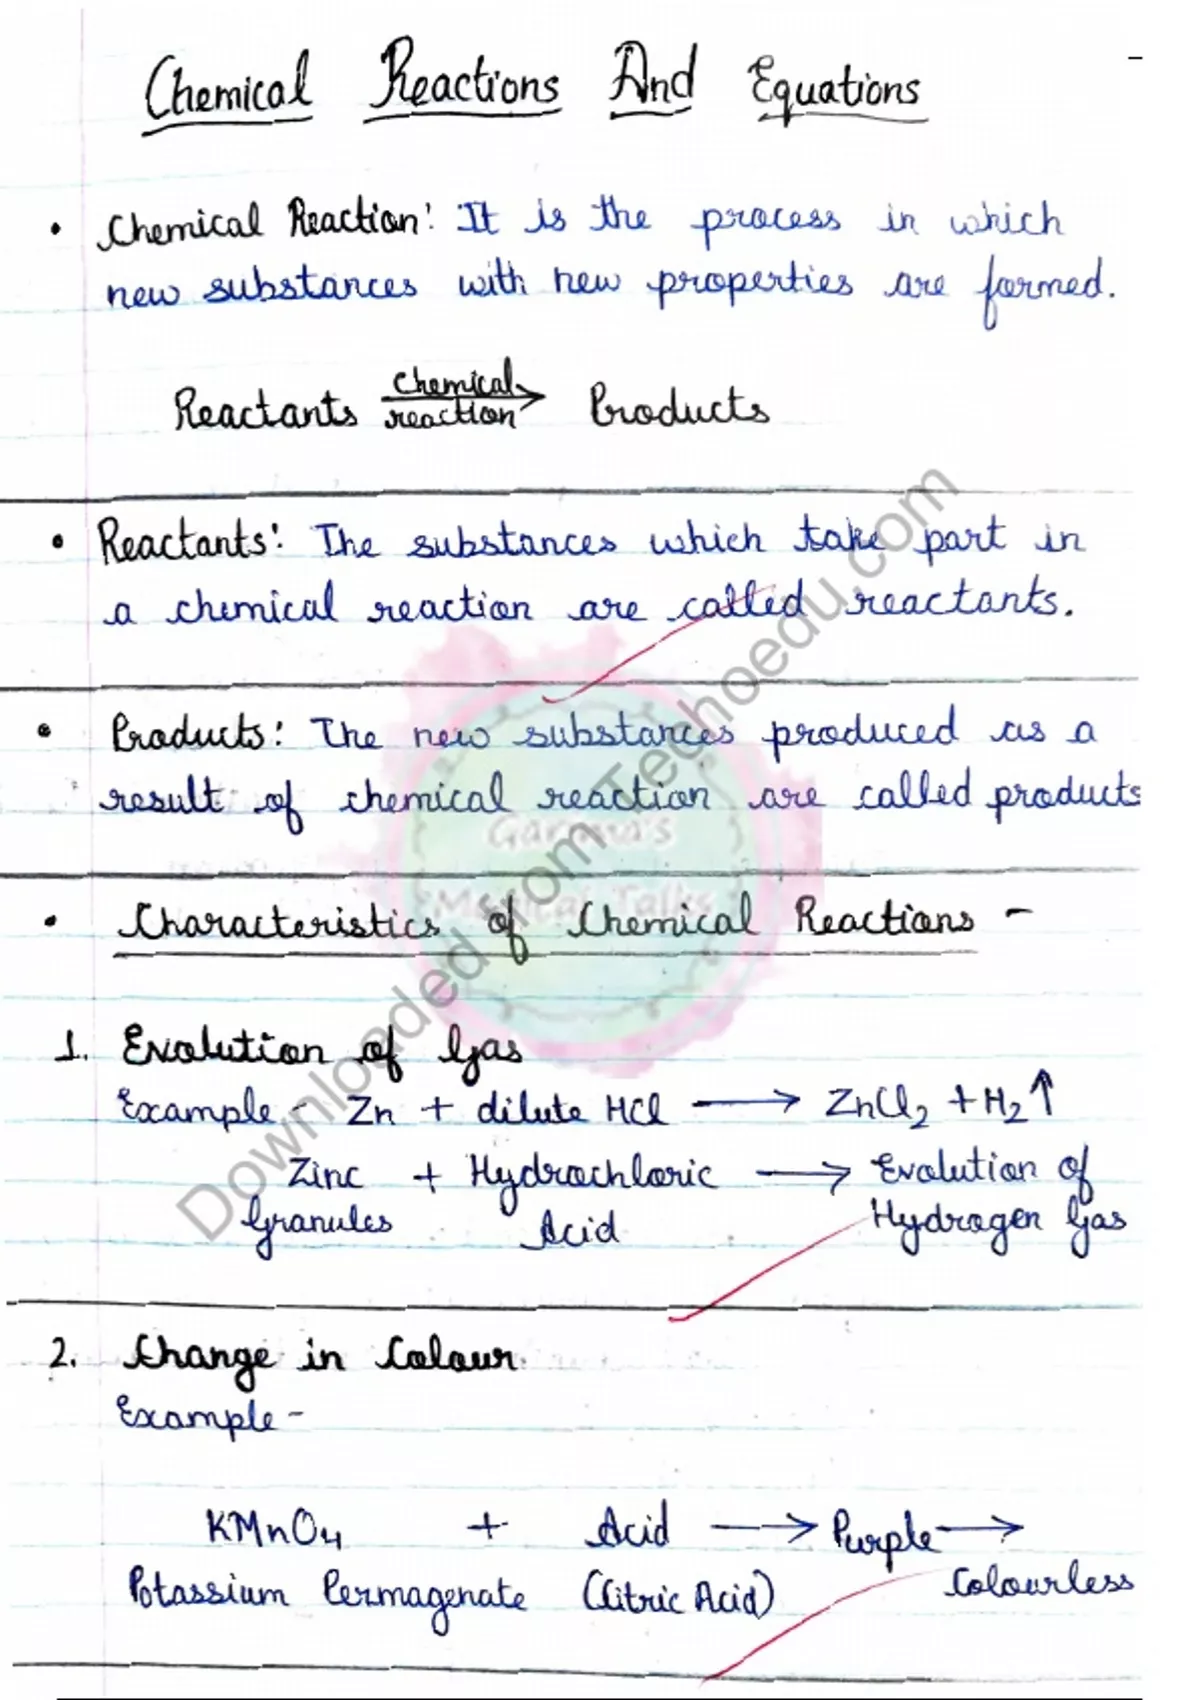 Chemical Reactions And Equations
• Chemical Reaction: It is the process in which
new substances with new properties are formed.
Reactants chemical reaction → Products
• Reactants: The substances which take part in
a chemical reaction are called reactants.
• Products: The new substances produced as a
result of chemical reaction are called products
• Characteristics of Chemical Reactions -
1. Evolution of Gas
Example - Zn + dilute HCl → ZnCl₂ + H₂↑
Zinc + Hydrochloric → Evolution of
Granules Acid Hydrogen Gas
2. Change in Colour
Example -
KMnO₄ + Acid → Purple →
Potassium Permagenate (Citric Acid) Colourless
Garima's
Magical Talks
Downloaded from Techoedu.com